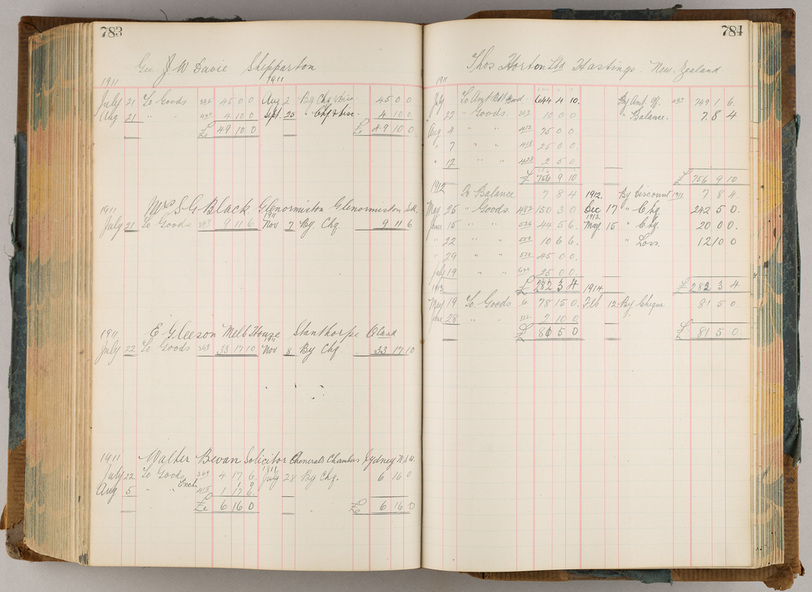 783
Geo J. W. Davie Shepparton
1911 1911
July 21 To Goods 45 0 0 Aug 2 By Chq & Dis 45 0 0
Aug 21 " " 4 10 0 Sept 25 " Chq & Dis 4 10 0
£ 49 10 0 £ 49 10 0
1911 Mrs S. G. Black Glenormiston Glenormiston Sth
1911
July 21 To Goods 9 11 6 Nov 7 By Chq. 9 11 6
1911 E Gleeson Melb House Stanthorpe Qland
1911
July 22 To Goods 33 17 10 Nov 8 By Chq 33 17 10
1911 Walter Bevan Solicitor Chambers Sydney N.S.W.
1911
July 22 To Goods 4 17 6 July 28 By Chq. 6 16 0
Exch 1 9
Aug 5 " " 1 17 6
£ 6 16 0 £ 6 16 0
784
Thos Horton Ltd Hastings New Zealand
1911
July To Amt 644 4 10 By Amt 749 1 6
22 " Goods 10 0 0 " Balance 7 8 4
Aug 4 " " 75 0 0
7 " " 25 0 0
12 " " 2 5 0
£ 756 9 10 £ 756 9 10
1912
To Balance 7 8 4 1912 By Discount 7 8 4
May 25 " Goods 150 3 0 Dec 17 " Chq 242 5 0
1913
June 15 " " 44 5 6 May 15 " Chq 20 0 0
22 " " 10 6 6 " Loss 12 10 0
29 " " 45 0 0
July 19 " " 25 0 0
£ 282 3 4 £ 282 3 4
1914
May 19 To Goods 6 78 15 0 Feb 12 By Cheque 81 5 0
June 28 " " 2 10 0
£ 81 5 0 £ 81 5 0